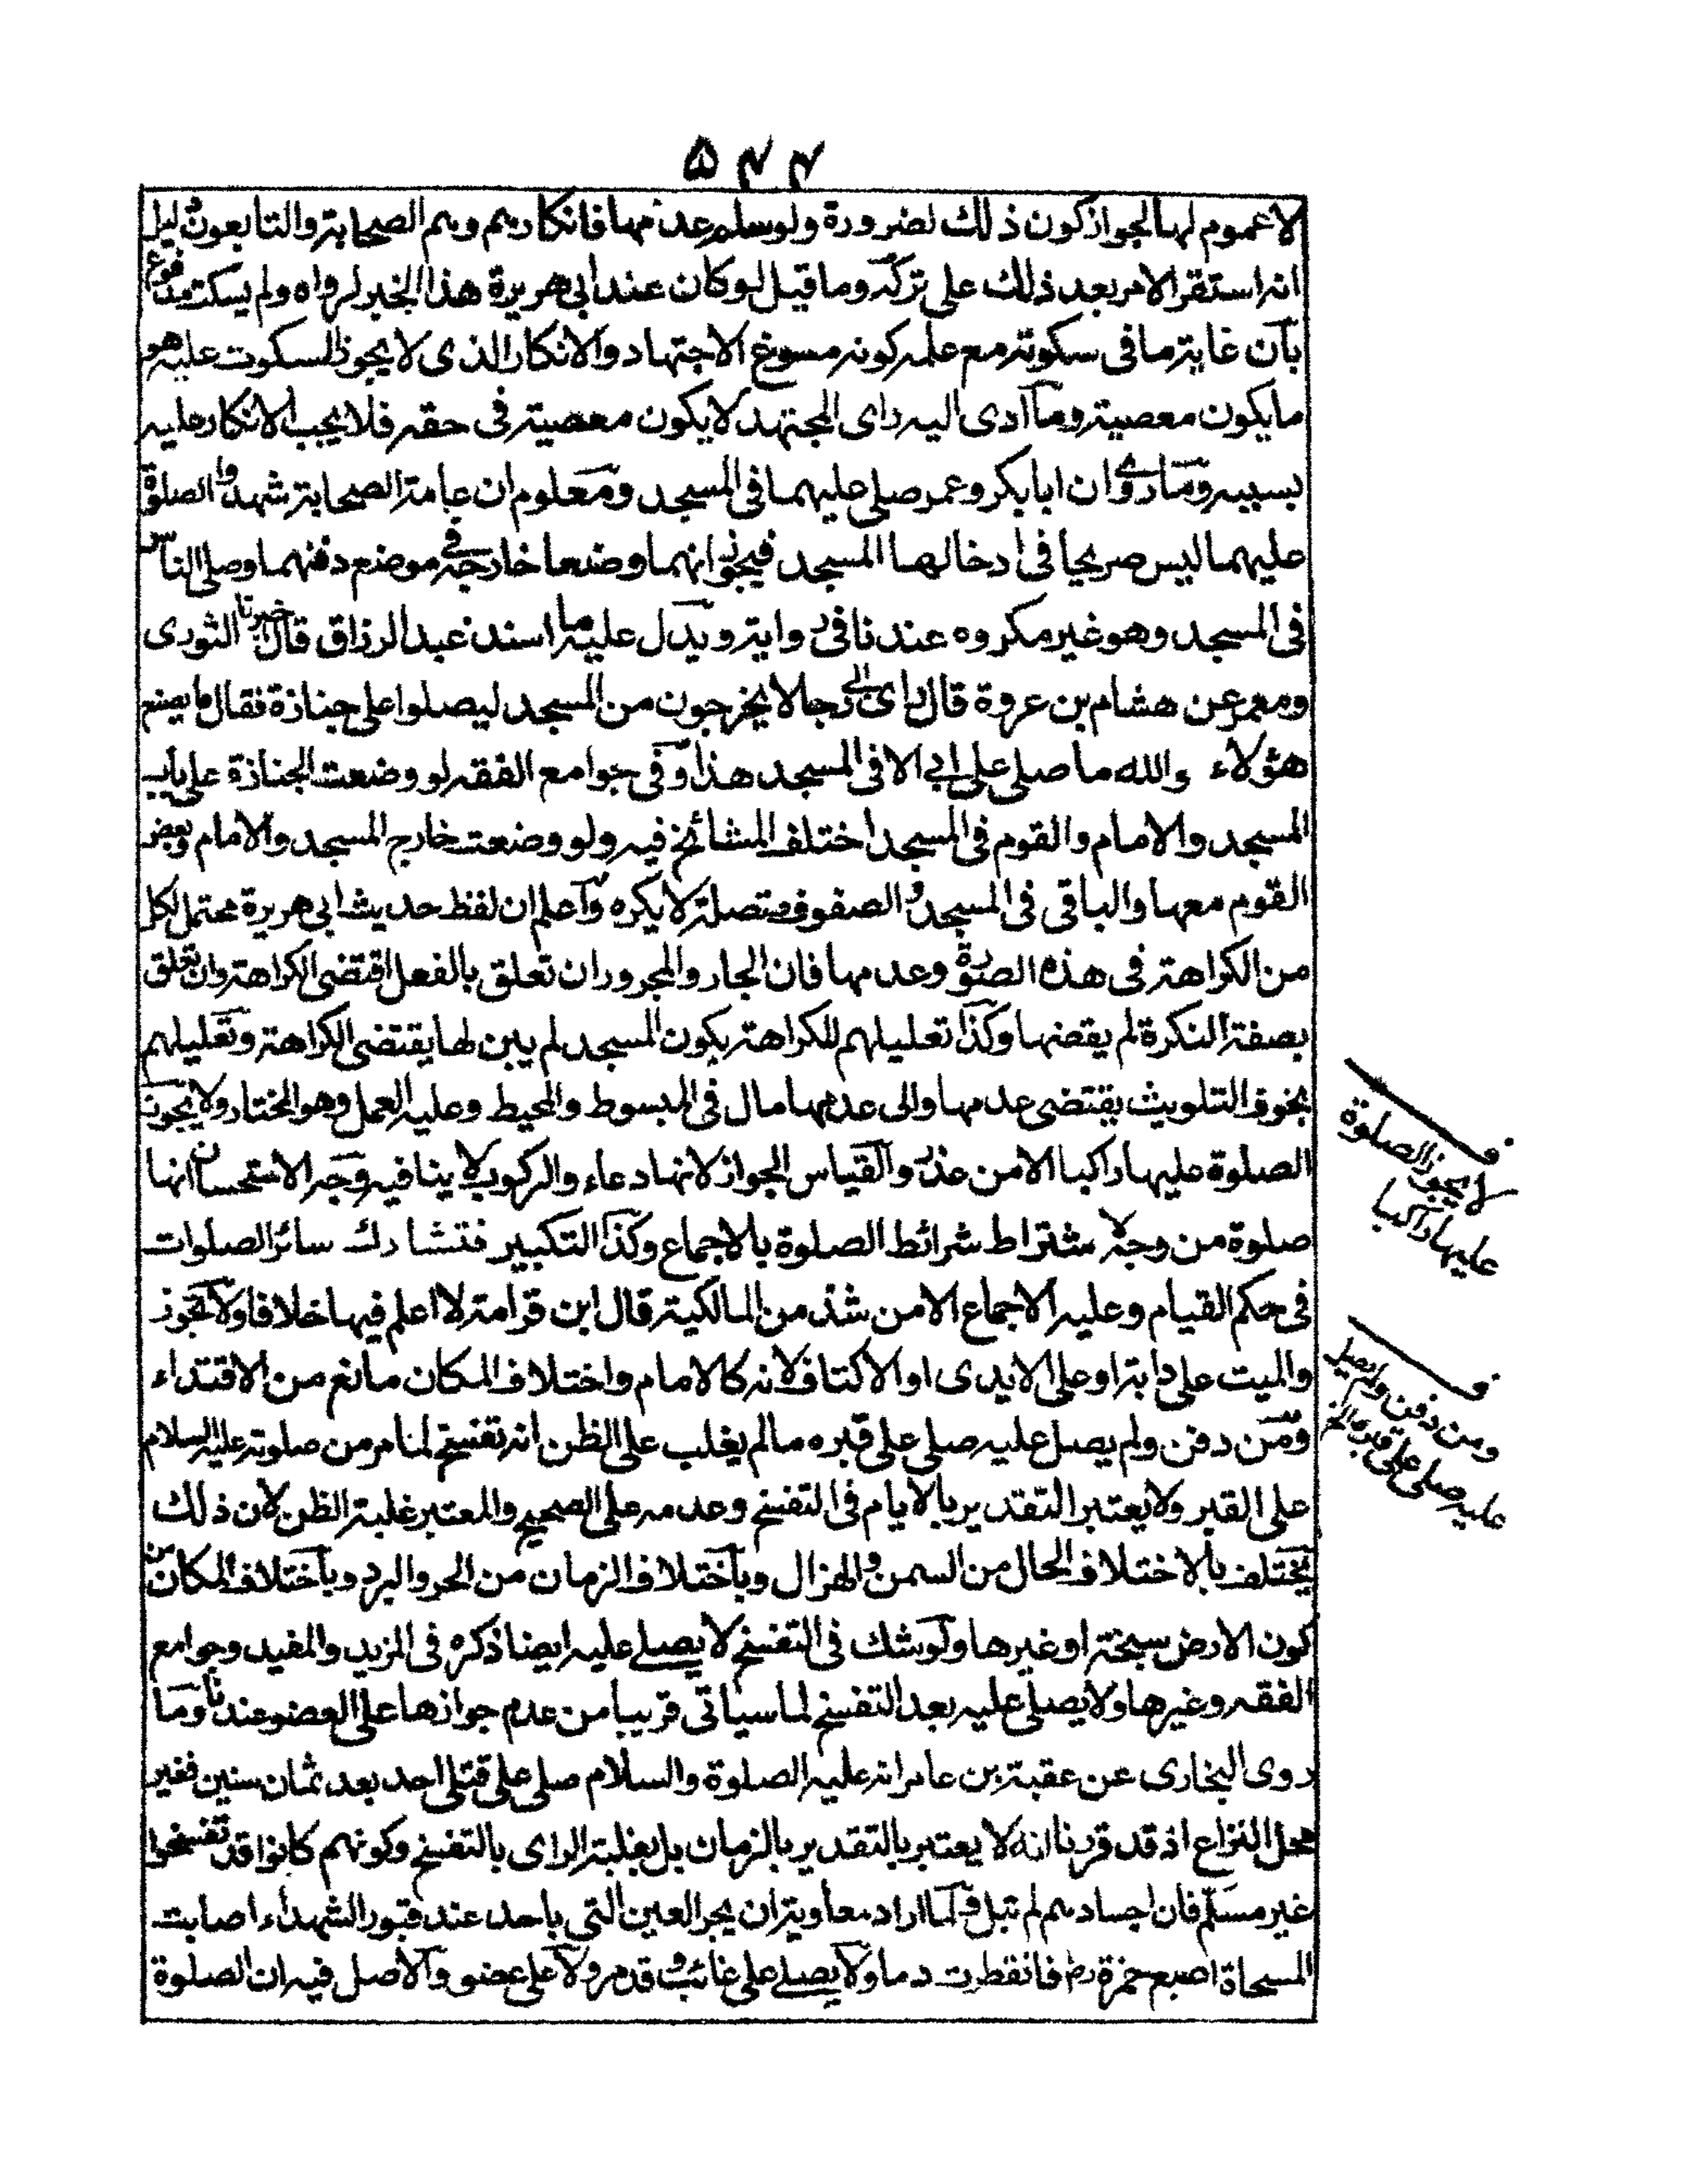 ۵۴۴
لا عموم لها لجواز كون ذلك لضرورة ولو سلم عدمها فانكارهم وهم الصحابة والتابعون دليل
انه استقر الامر بعد ذلك على تركه وما قيل لو كان عند ابى هريرة هذا الخبر لرواه ولم يسكت مدفوع
بان غاية ما فى سكوته مع علمه كونه مسوغ الاجتهاد والانكار الذى لا يجوز السكوت عليه هو
ما يكون معصية وما ادى اليه راى المجتهد لا يكون معصية فى حقه فلا يجب الانكار عليه
بسببه وما روى ان ابا بكر وعمر صلى عليهما فى المسجد ومعلوم ان عامة الصحابة شهدوا الصلوة
عليهما ليس صريحا فى ادخالهما المسجد فيجوز انهما وضعا خارجه فى موضع دفنهما وصلى الناس
فى المسجد وهو غير مكروه عندنا فى رواية ويدل عليه ما اسند عبد الرزاق قال اخبرنا الثورى
ومعمر عن هشام بن عروة قال راى ابى رجالا يخرجون من المسجد ليصلوا على جنازة فقال ما يصنع
هؤلاء والله ما صلى على ابى الا فى المسجد هذا وفى جوامع الفقه لو وضعت الجنازة على باب
المسجد والامام والقوم فى المسجد اختلف المشائخ فيه ولو وضعت خارج المسجد والامام وبعض
القوم معها والباقى فى المسجد والصفوف متصلة لا يكره واعلم ان لفظ حديث ابى هريرة محتمل لكل
من الكراهة فى هذه الصورة وعدمها فان الجار والمجرور ان تعلق بالفعل اقتضى الكراهة وان تعلق
بصفة النكرة لم يقضها وكذا تعليلهم للكراهة بكون المسجد لم يبن لها يقتضى الكراهة وتعليلهم
بخوف التلويث يقتضى عدمها والى عدمها مال فى المبسوط والمحيط وعليه العمل وهو المختار ولا يجوز
الصلوة عليها راكبا الا من عذر والقياس الجواز لانها دعاء والركوب لا ينافيه وجه الاستحسان انها
صلوة من وجه لاشتراط شرائط الصلوة بالاجماع وكذا التكبير فتشارك سائر الصلوات
فى حكم القيام وعليه الاجماع الا من شذ من المالكية قال ابن قدامة لا اعلم فيها خلافا ولا تجوز
والميت على دابة او على الايدى او الاكتاف لانه كالامام واختلاف المكان مانع من الاقتداء
ومن دفن ولم يصل عليه صلى على قبره ما لم يغلب على الظن انه تفسخ لما مر من صلوته عليه السلام
على القبر ولا يعتبر التقدير بالايام فى التفسخ وعدمه على الصحيح والمعتبر غلبة الظن لان ذلك
يختلف بالاختلاف الحال من السمن والهزال وباختلاف الزمان من الحر والبرد وباختلاف المكان من
كون الارض سبخة او غيرها ولو شك فى التفسخ لا يصلى عليه ايضا ذكره فى المزيد والمفيد وجوامع
الفقه وغيرها ولا يصلى عليه بعد التفسخ لما سياتى قريبا من عدم جوازها على العضو عندنا وما
روى البخارى عن عقبة بن عامر انه عليه الصلوة والسلام صلى على قتلى احد بعد ثمان سنين فغير
محل النزاع اذ قد قررنا انه لا يعتبر بالتقدير بالزمان بل بغلبة الراى بالتفسخ وكونهم كانوا قد تفسخوا
غير مسلم فان اجسادهم لم تبل ولما اراد معاوية ان يجر العين التى باحد عند قبور الشهداء اصابت
المسحاة اصبع حمزة رض فانقطرت دما ولا يصلى على غائب وقد مر ولا على عضو والاصل فيه ان الصلوة
ف
لا يجوز الصلوة
عليها راكبا
ف
ومن دفن ولم يصل
عليه صلى على قبره الخ